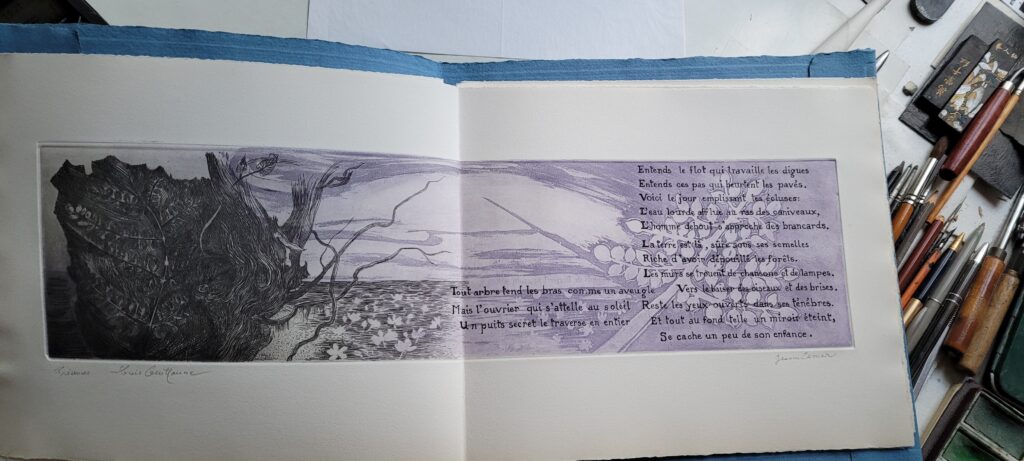 Entends le flot qui travaille les digues
Entends ces pas qui heurtent les pavés.
Voici le jour emplissant les écluses:
L'eau lourde afflue au ras des caniveaux,
L'homme debout s'approche des brancards,
La terre est là, sûre sous ses semelles
Riche d'avoir dépouillé les forêts.
Les murs se trouent de chansons et de lampes.
Tout arbre tend les bras comme un aveugle
Vers le baiser des oiseaux et des brises,
Mais l'ouvrier qui s'attelle au soleil
Reste les yeux ouverts dans ses ténèbres.
Un puits secret le traverse en entier
Et tout au fond telle un miroir éteint,
Se cache un peu de son enfance.
Louis Guillaume